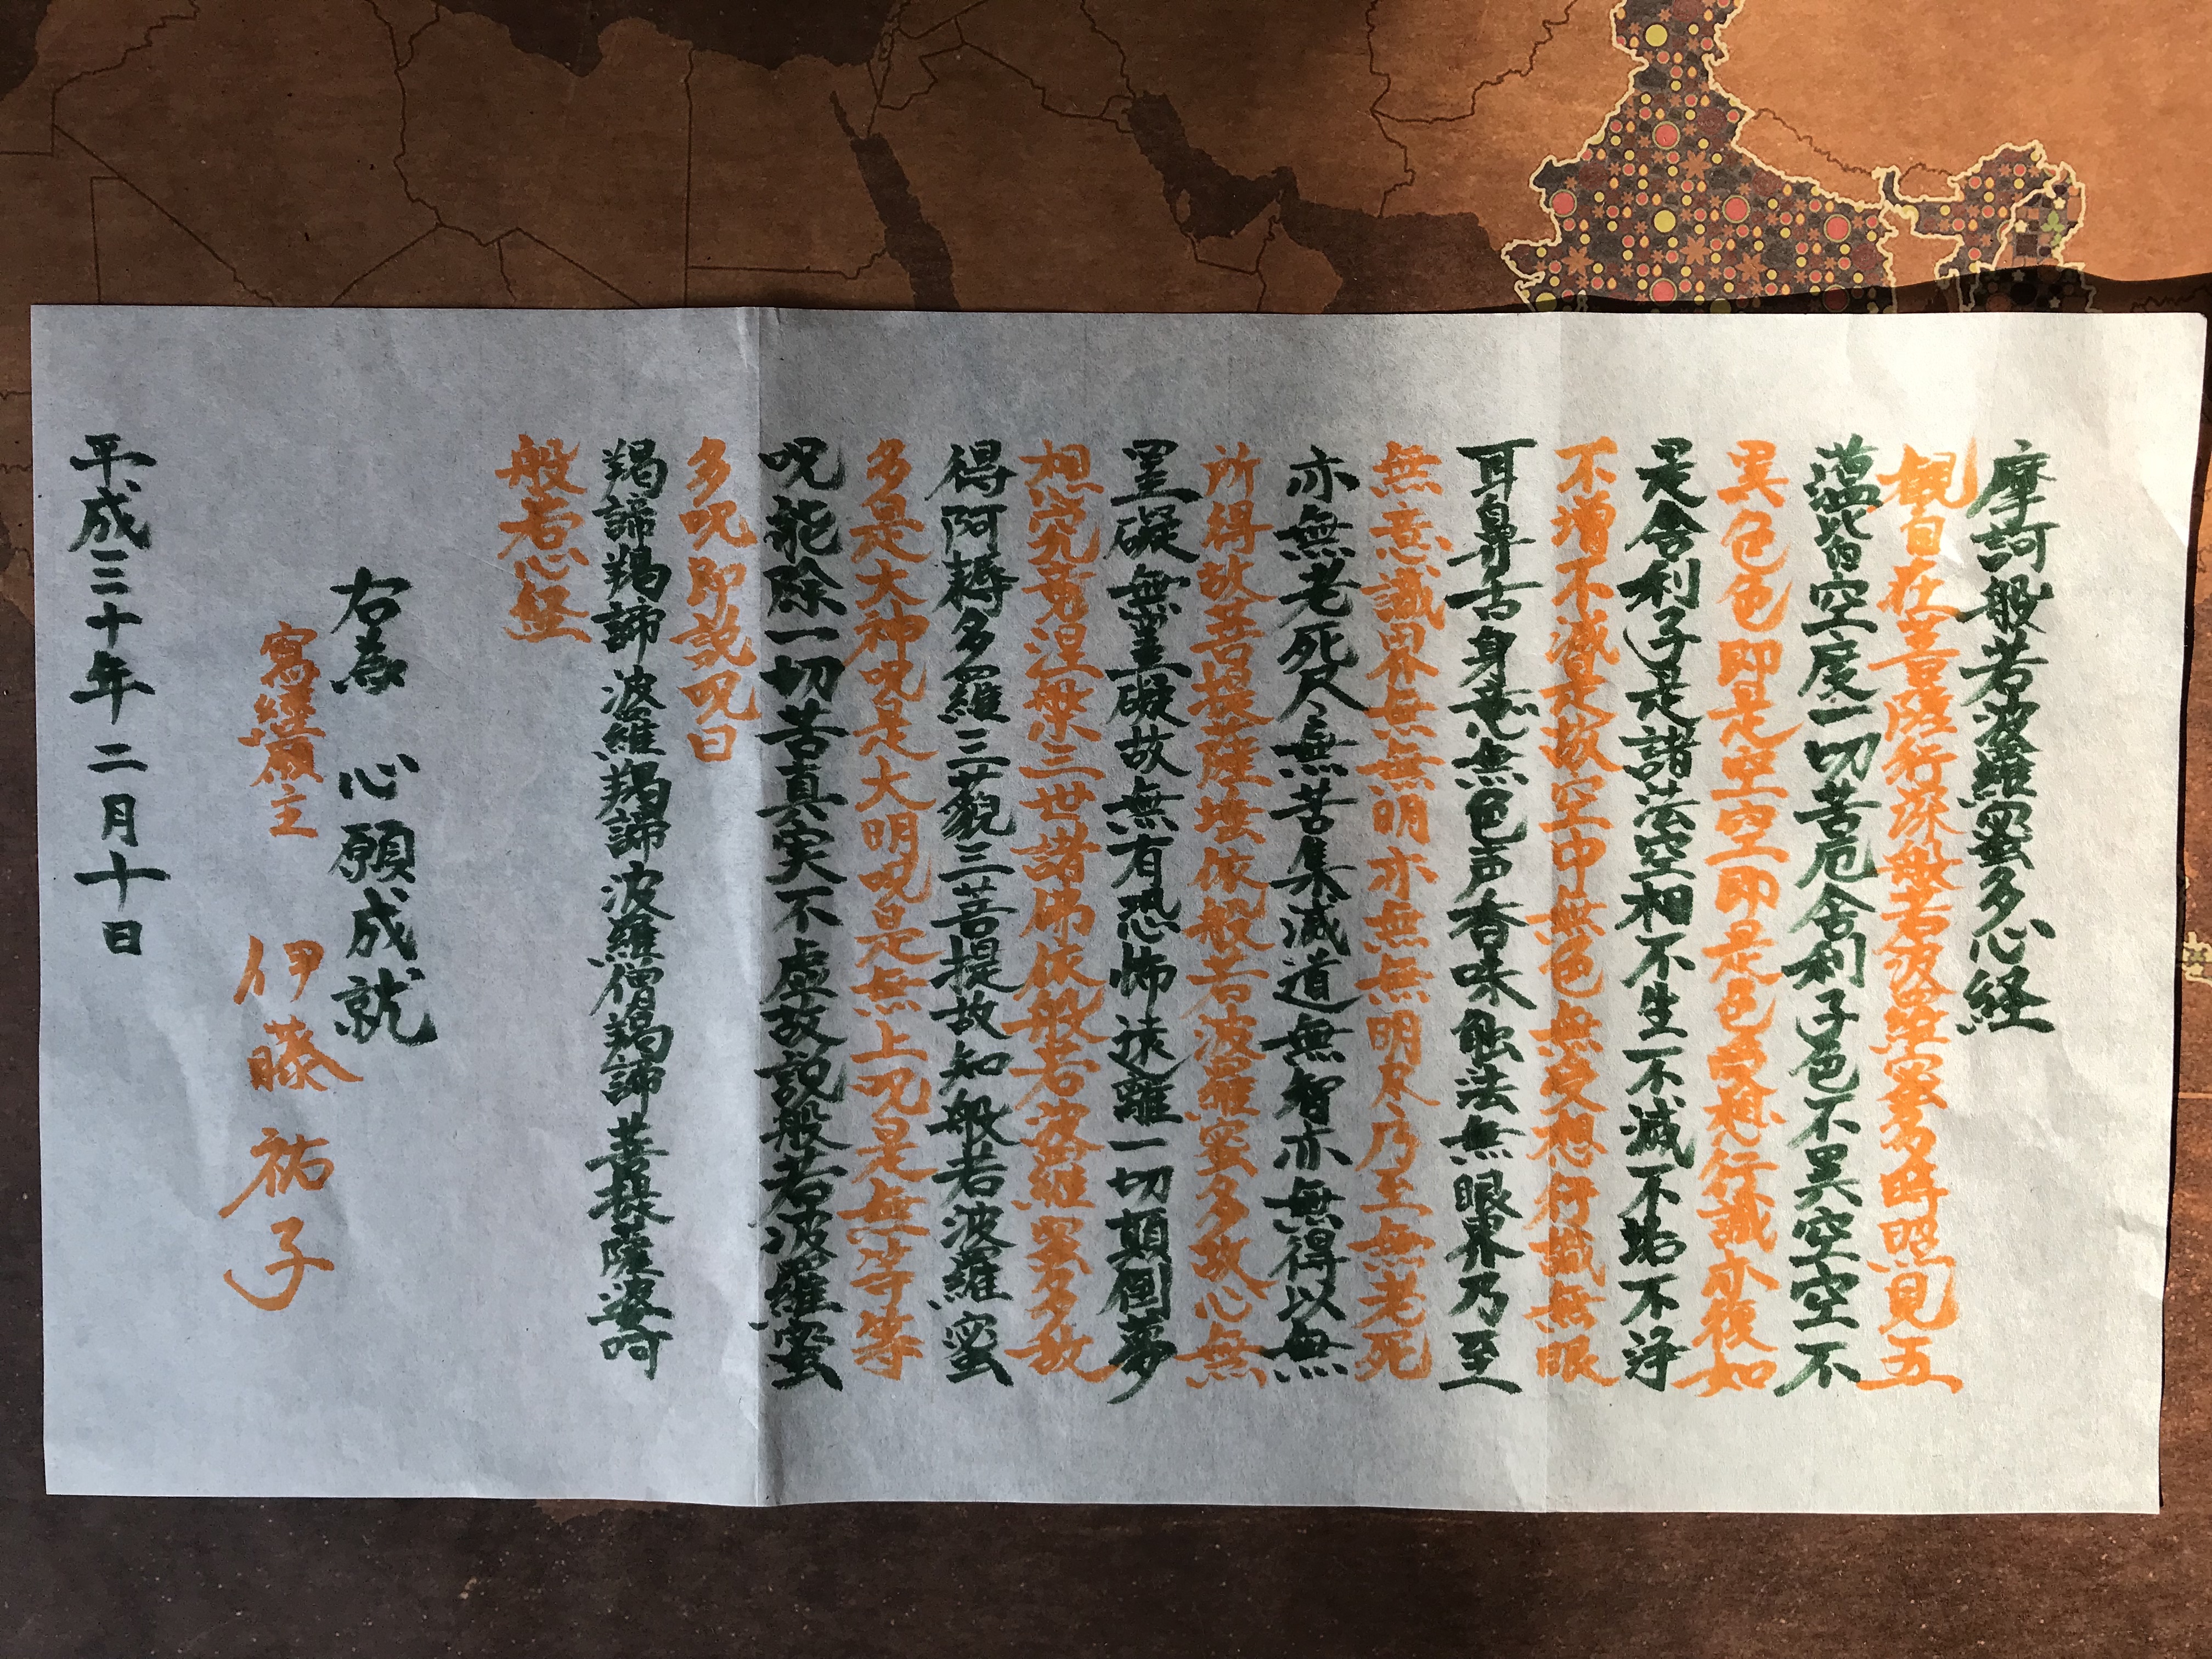 摩訶般若波羅蜜多心経
観自在菩薩行深般若波羅蜜多時照見五
蘊皆空度一切苦厄舎利子色不異空空不
異色色即是空空即是色受想行識亦復如
是舎利子是諸法空相不生不滅不垢不浄
不増不減是故空中無色無受想行識無眼
耳鼻舌身意無色声香味触法無眼界乃至
無意識界無無明亦無無明尽乃至無老死
亦無老死尽無苦集滅道無智亦無得以無
所得故菩提薩埵依般若波羅蜜多故心無
罣礙無罣礙故無有恐怖遠離一切顛倒夢
想究竟涅槃三世諸佛依般若波羅蜜多故
得阿耨多羅三藐三菩提故知般若波羅蜜
多是大神呪是大明呪是無上呪是無等等
呪能除一切苦真実不虚故説般若波羅蜜
多呪即説呪曰
羯諦羯諦波羅羯諦波羅僧羯諦菩提薩婆訶
般若心経
右為 心願成就
寫經願主 伊藤祐子
平成三十年二月十日